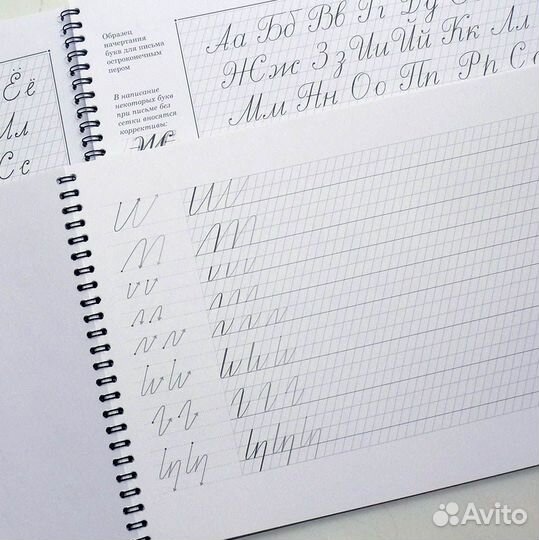 Образец
начертания
букв для письма
остроконечным
пером
В написание
некоторых букв
при письме без
сетки вносятся
коррективы:
Ж
Ёё
Лл
Сс
Аа Бб Вв Гг Дд
Жж Зз Ии Йй Кк Лл
Мм Нн Оо Пп Рр Сс
Avito